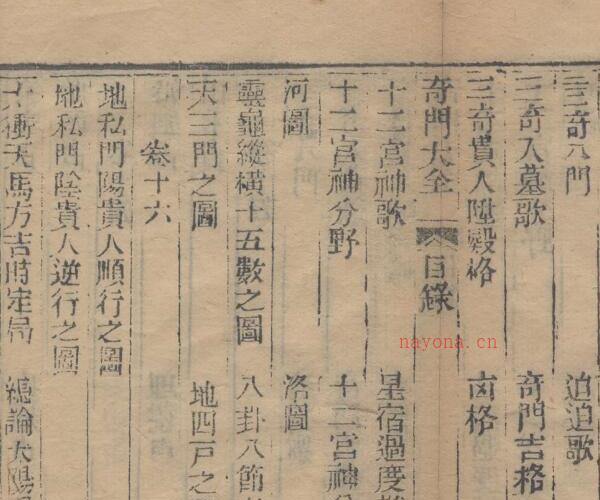 三奇入門 迫迫歌
三奇入墓歌 奇門吉格
三奇貴人陞殿格 凶格
奇門大全 目錄
十二宮神歌 星宿過度
十二宮神分野 十二宮神分
河圖 洛圖
靈龜縱橫十五數之圖 八卦八節
天三門之圖 地四戶之
卷十六
地私門陽貴人順行之圖
地私門陰貴人逆行之圖
太衝天馬方吉時定局 總論太陽
nayona.cn